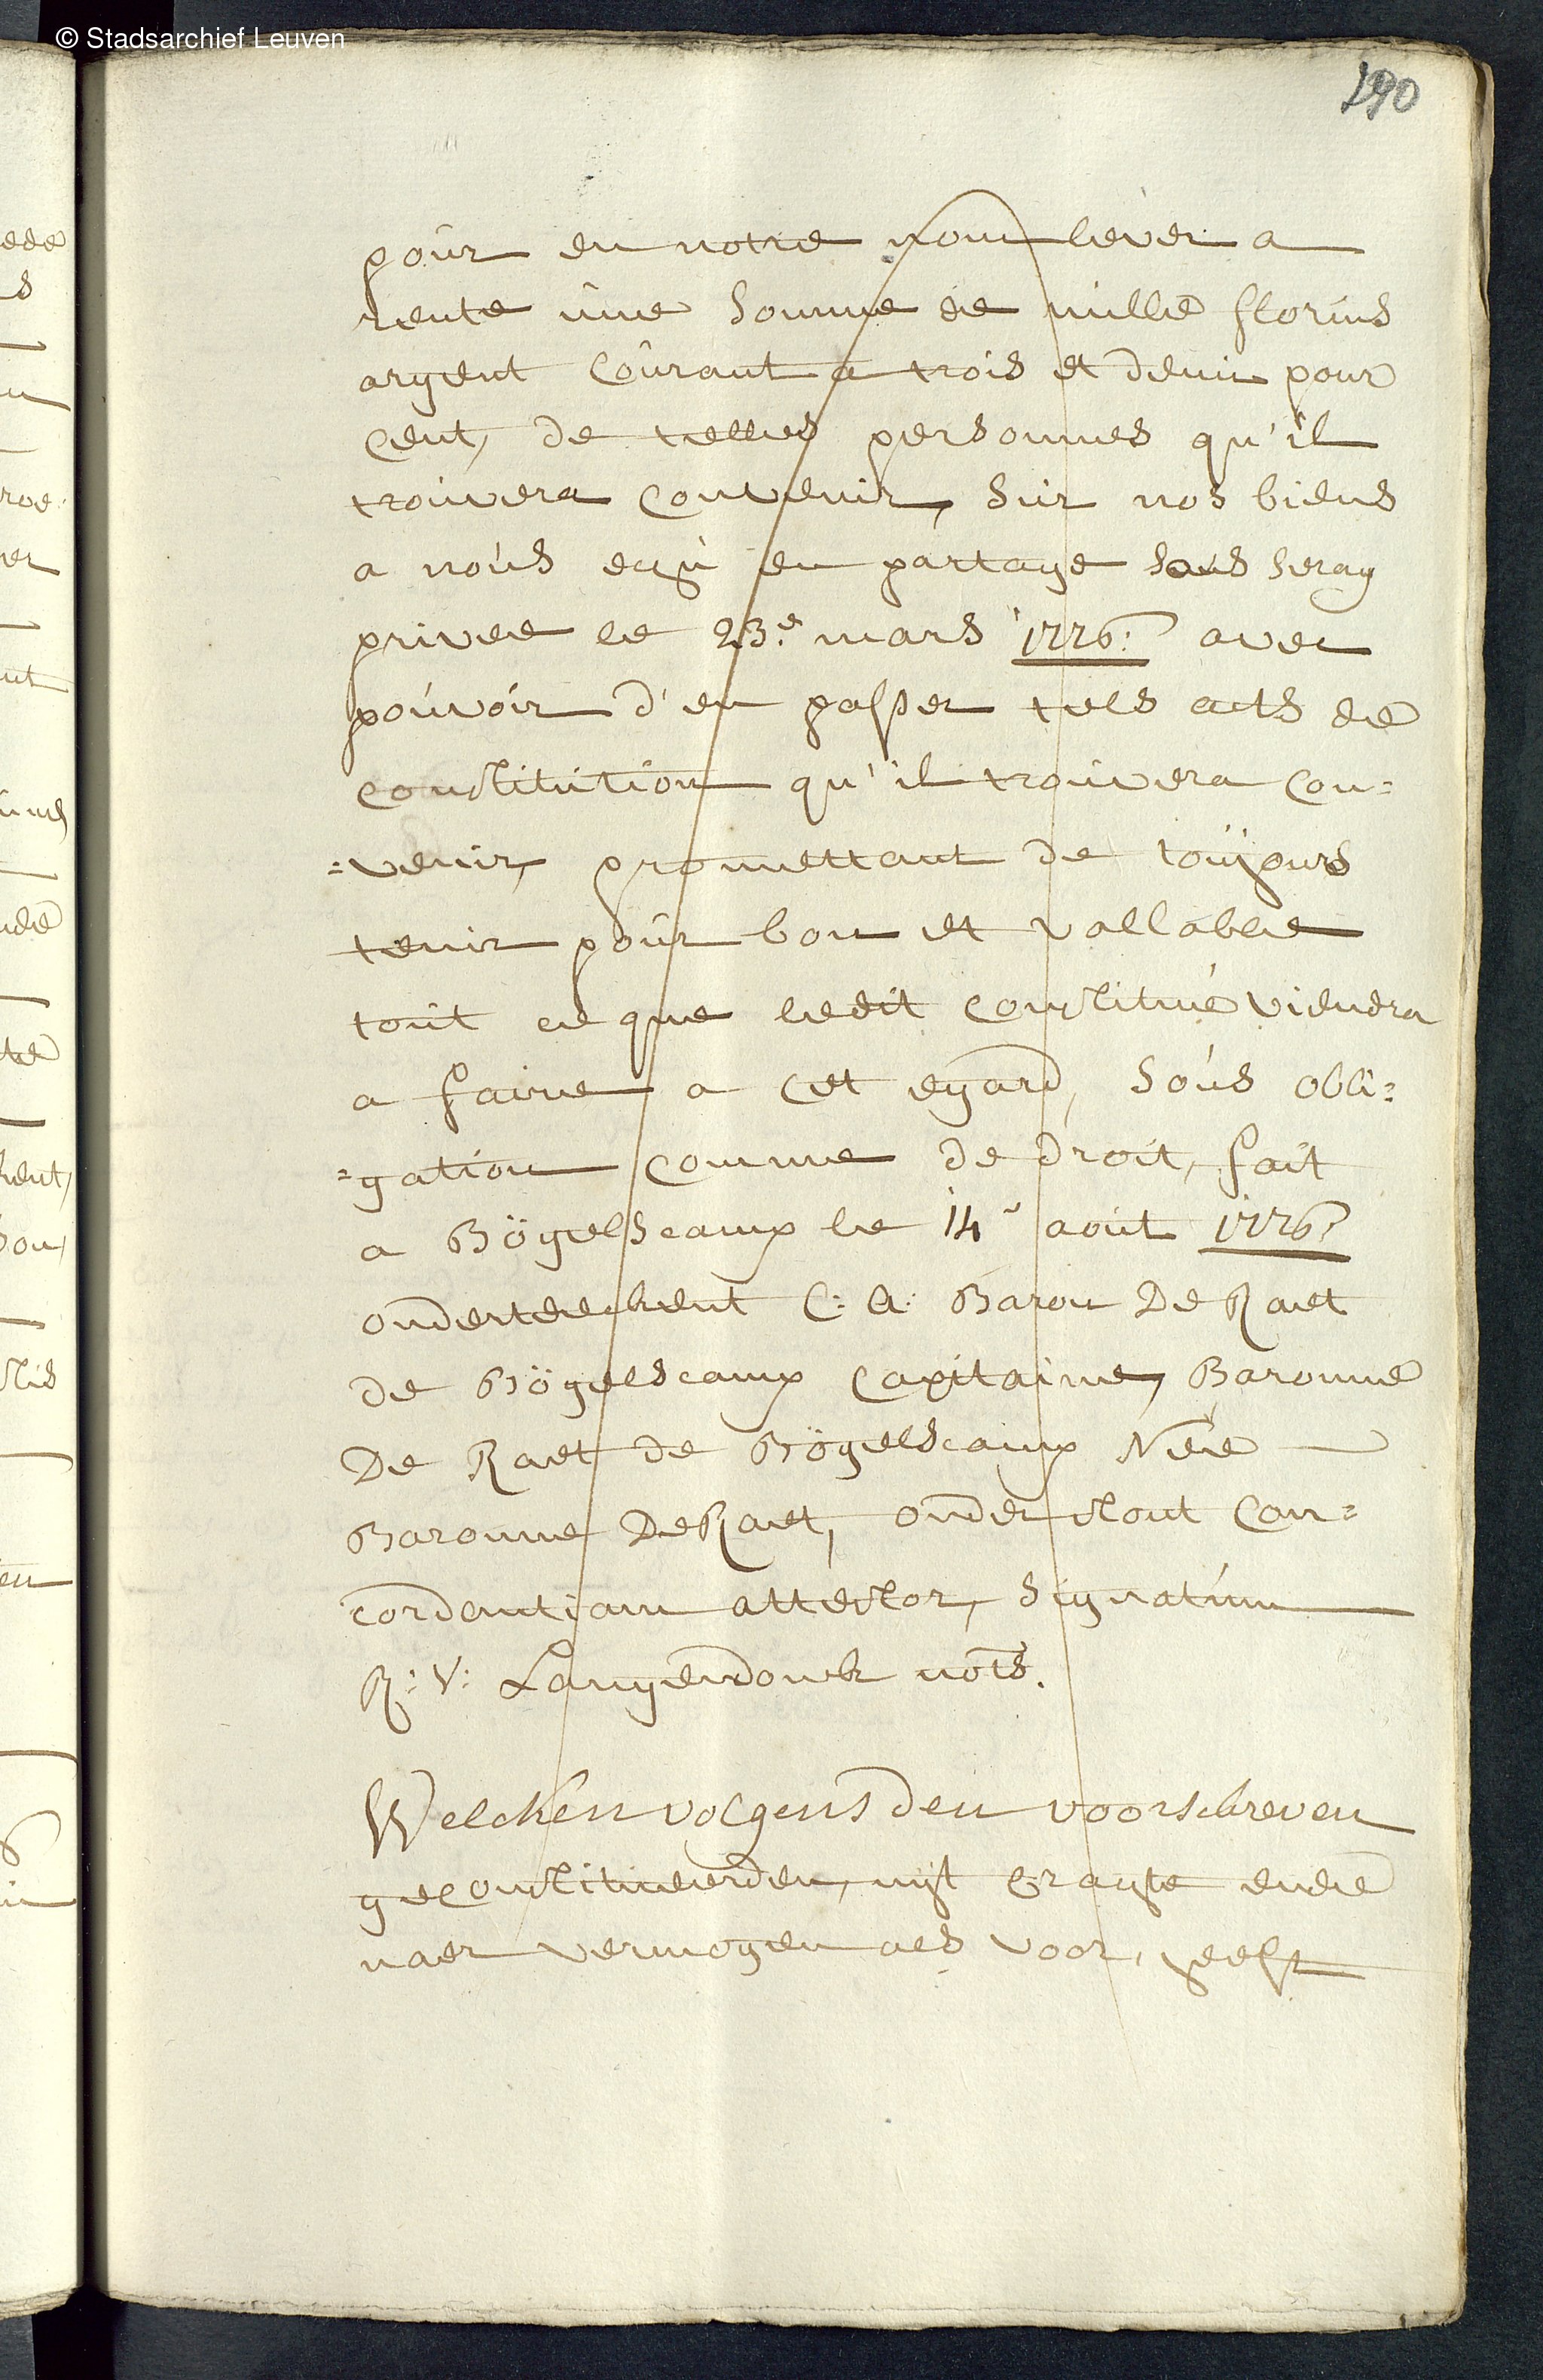 © Stadsarchief Leuven
290
pour en notre nom lever a
rente une somme de mille florins
argent courant a trois et demi pour
cent, de telles personnes qu'il
trouvera convenir, sur nos biens
a nous echu en partage sous seray
privee le 23.e mars 1776: avec
pouvoir d'en passer tels acts de
constitution qu'il trouvera con=
=venir, promettant de toujours
tenir pour bon et vallable
tout ce que ledit constitué viendra
a faire a cet egard, sous obli=
=gation comme de droit, fait
a Bögelscamp le 14 août 1776:
onderteekent C: A: Baron De Raet
de Bögelscamp Capitaine, Baronne
De Raet de Bögelscamp Née
Baronne De Raet, onder stont Con=
cordantiam attestor, signatum
R: V: Langendonck nots.
Welcken volgens den voorschreven
geconstitueerden, uijt cragte ende
naer vermogen als voor, heeft
ede
s